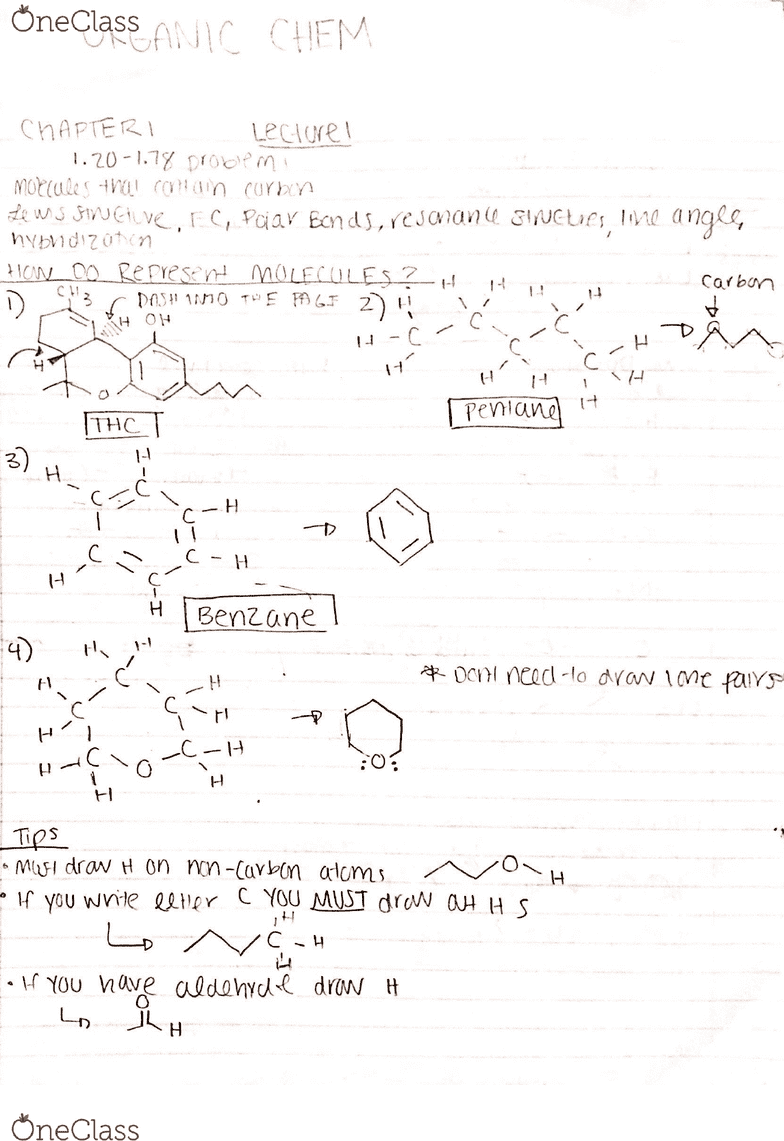 OneClass
ORGANIC CHEM
CHAPTER 1 Lecture 1
1.20-1.78 problem
molecules that contain carbon
Lewis structure, FC, Polar Bonds, resonance structures, line angle,
hybridization
HOW DO Represent MOLECULES?
1) CH3 DASH INTO THE PAGE
H OH
H
O
THC
2) H H H H H
H - C C C
H C C H
H H H H
Pentane
carbon
3) H H
C C C - H
C C - H
H C
H
Benzane
4) H H
H C H
C C H
H
H C O C H
H H
:O:
* Dont need to draw lone pairs
Tips
• Must draw H on non-carbon atoms O H
• If you write letter C YOU MUST draw all H s
H
C - H
H
• If you have aldehyde draw H
O
H
OneClass